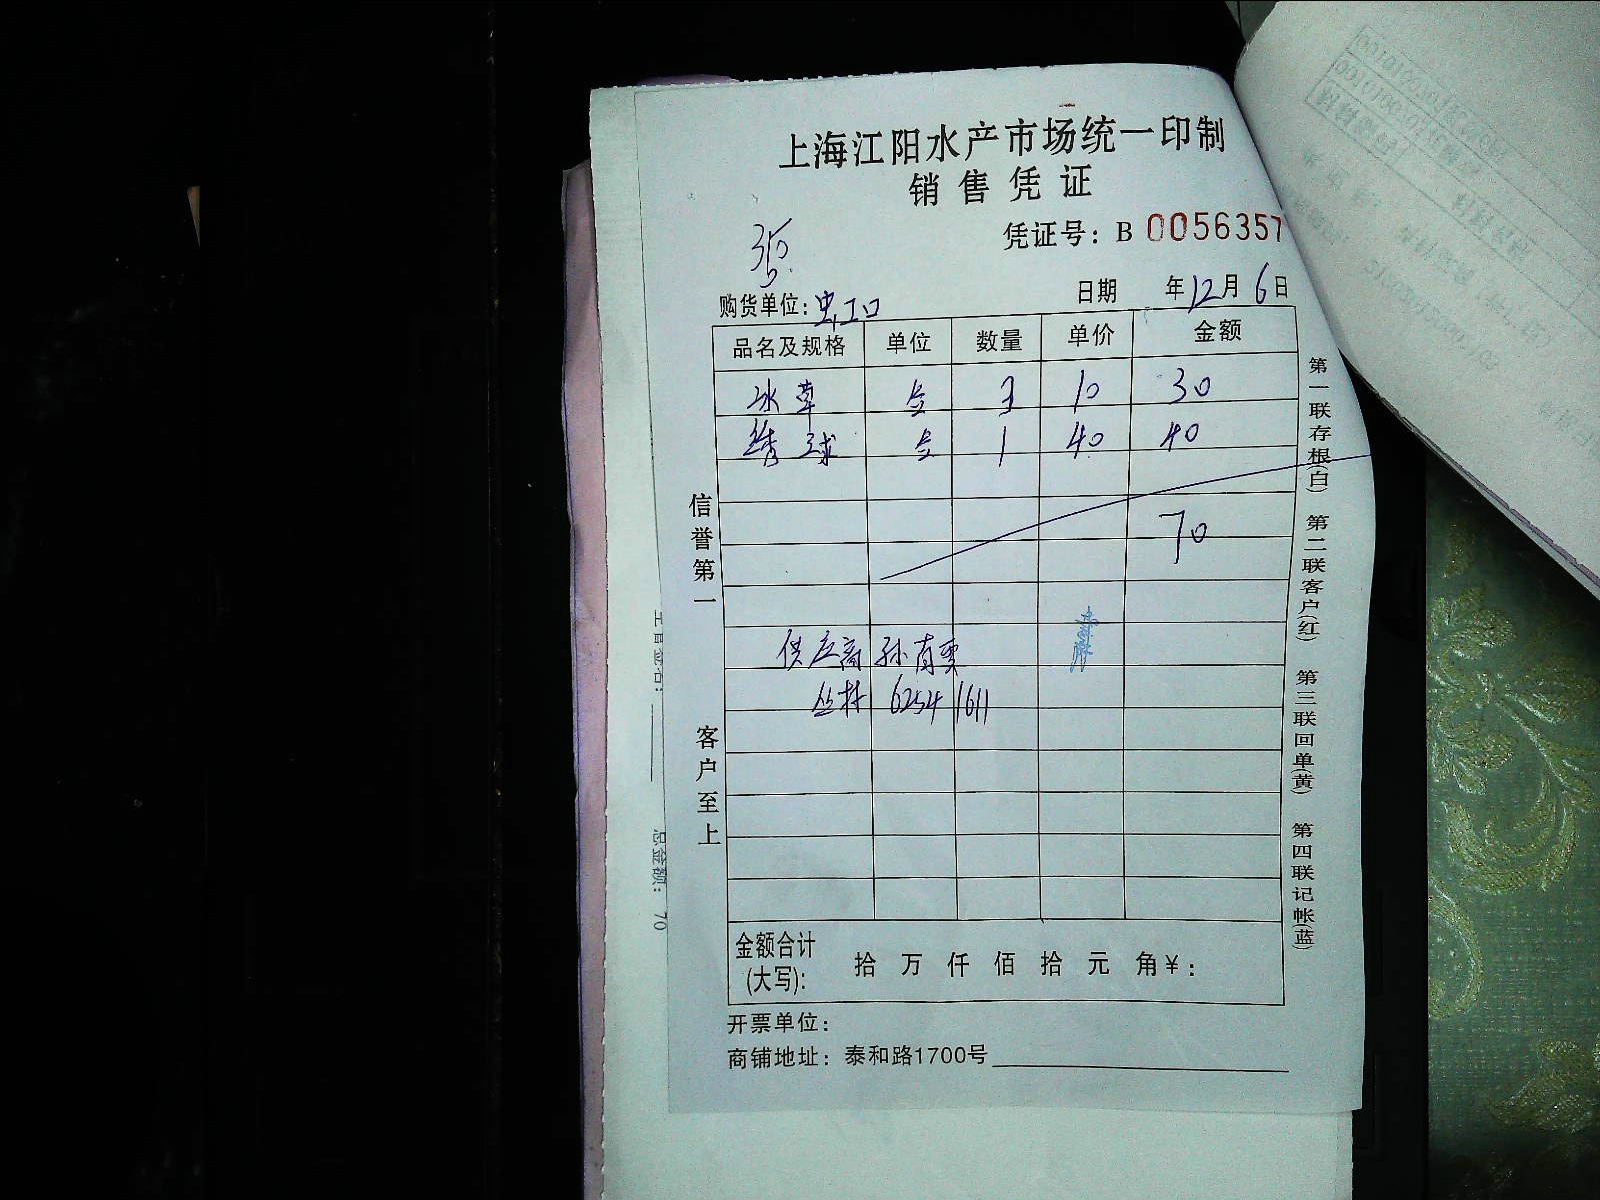 上海江阳水产市场统一印制
销售凭证
凭证号: B 0056357
购货单位: 虹口
日期 年12月6日
品名及规格 单位 数量 单价 金额
冰草 3 10 30
绣球 1 40 40
70
供应商 孙
丛林 6254 1611
信誉第一
客户至上
第一联存根(白) 第二联客户(红) 第三联回单(黄) 第四联记帐(蓝)
金额合计(大写): 拾 万 仟 佰 拾 元 角 ¥:
开票单位:
商铺地址: 泰和路1700号
总金额: 70